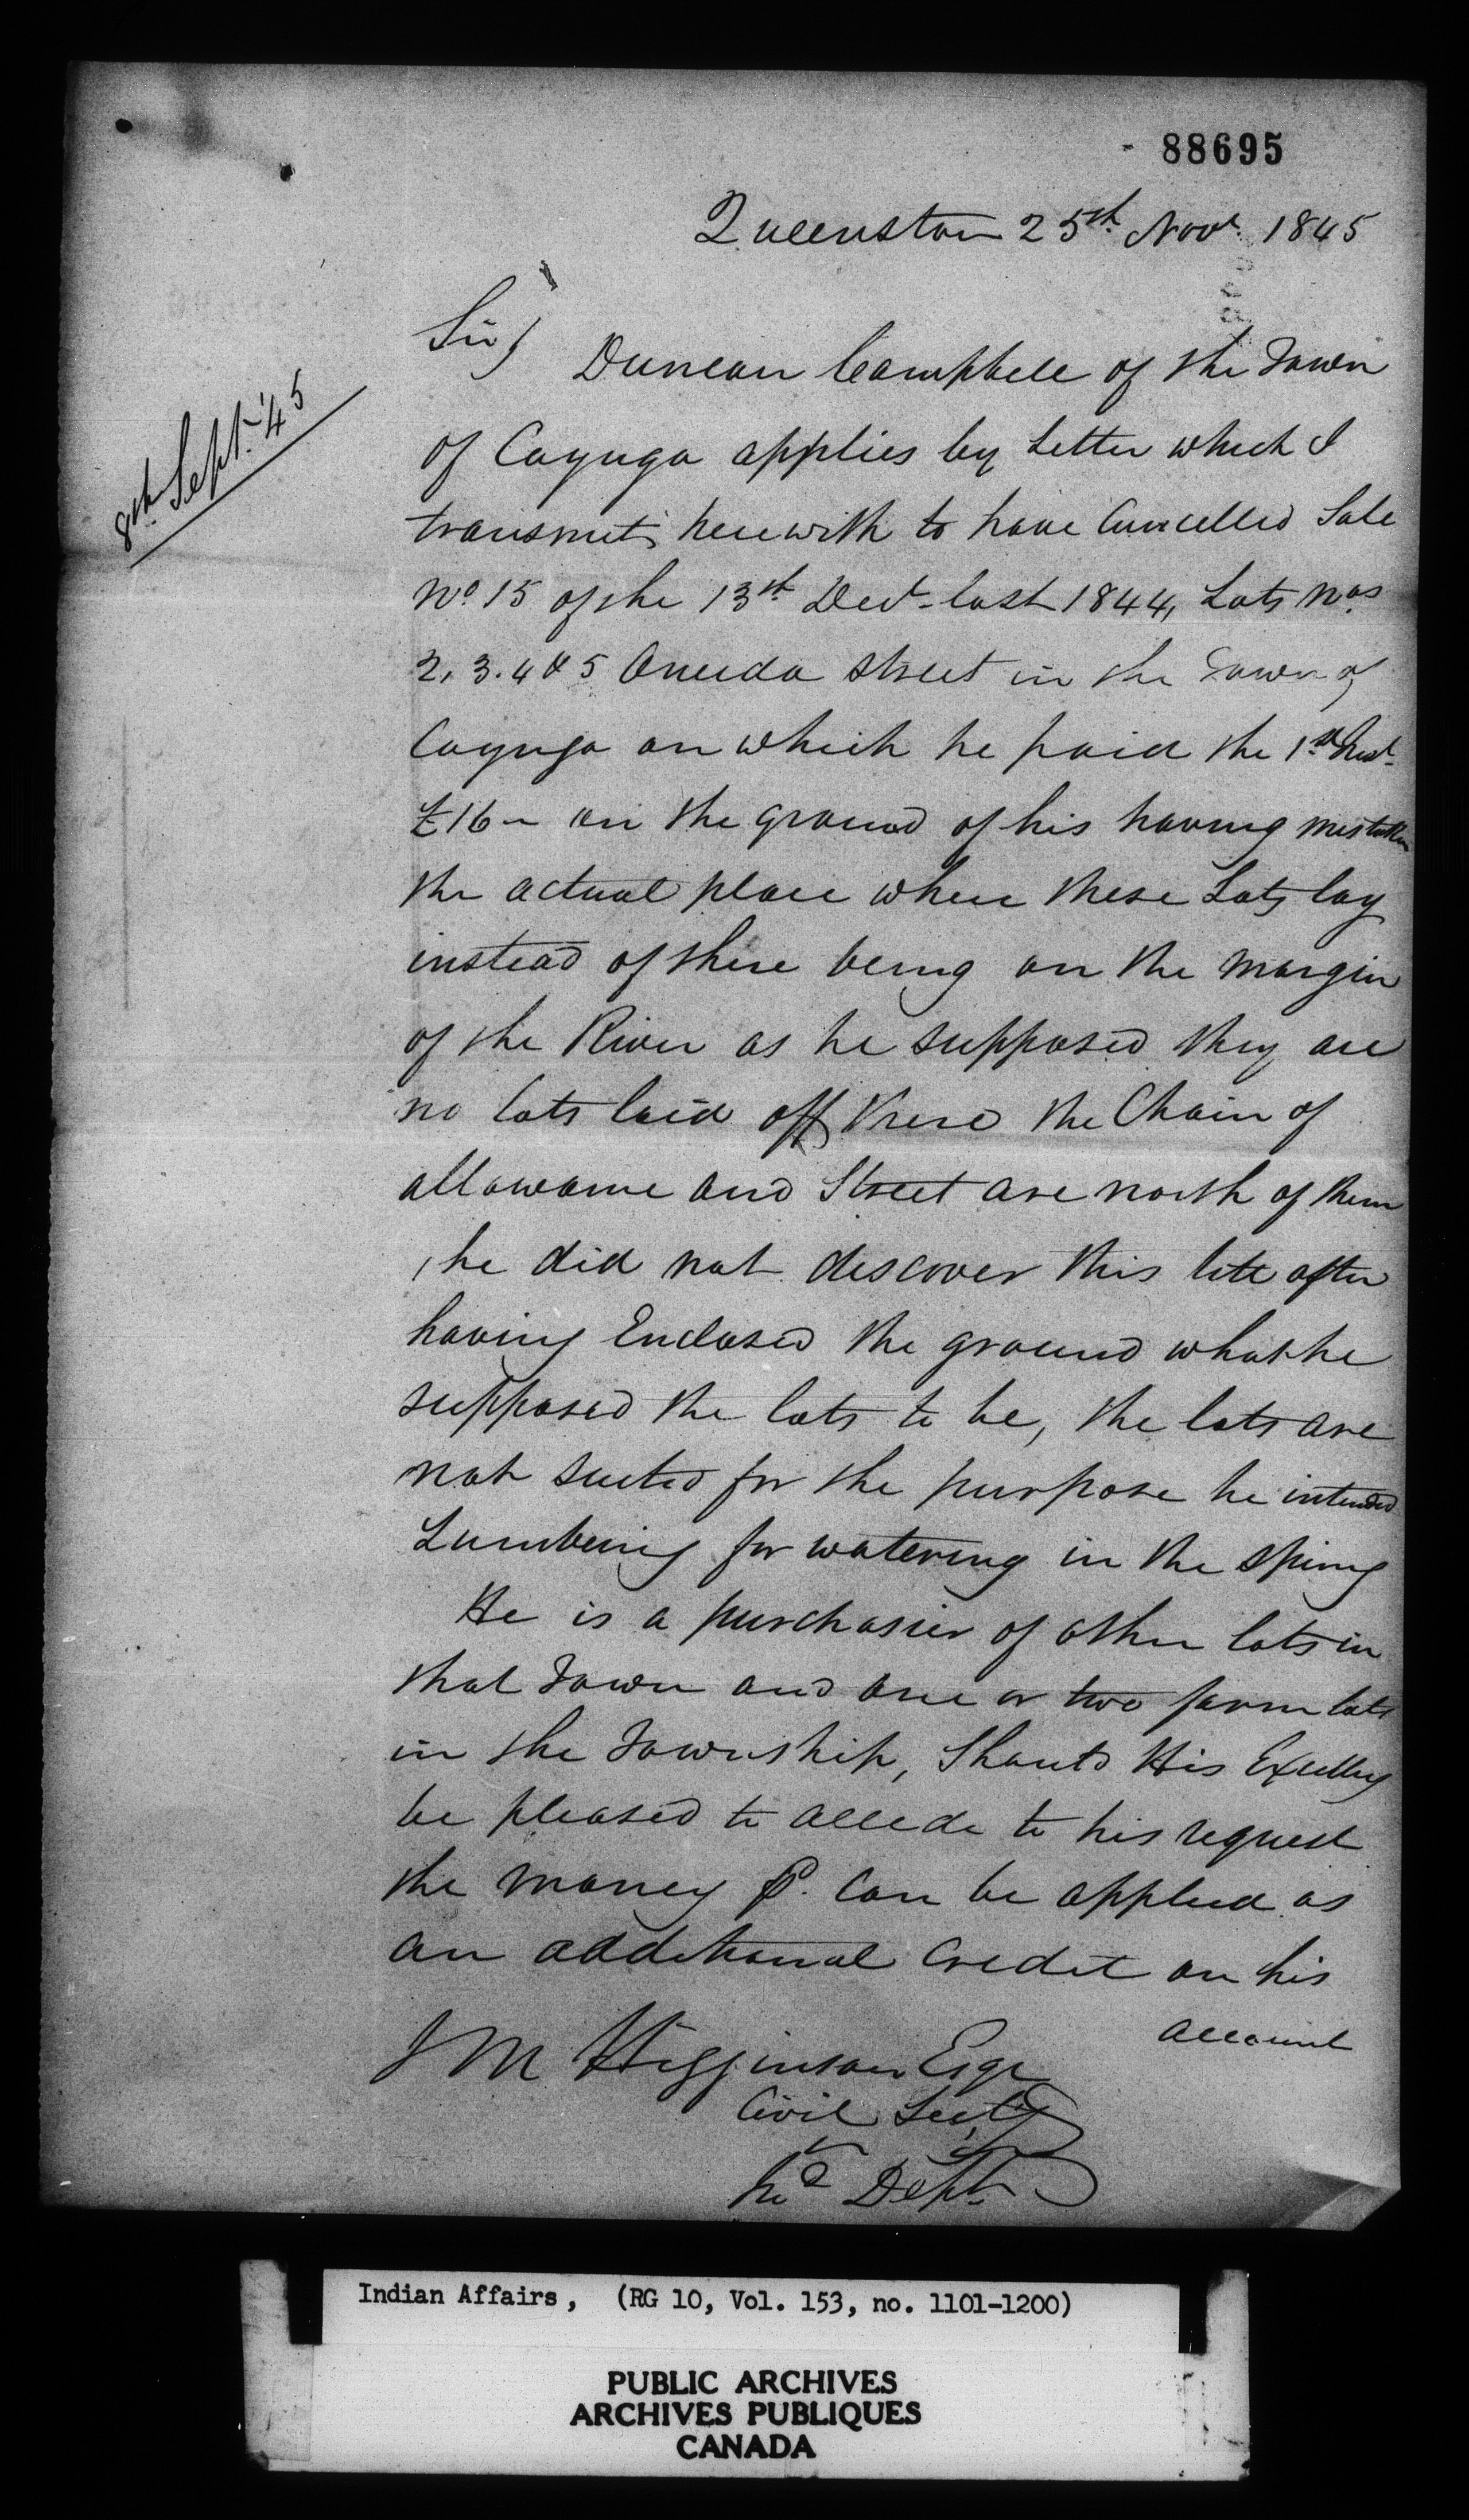 - 88695
Queenston 25th Novr. 1845
Sir,
8th Sept. '45
Duncan Campbell of the Town
of Cayuga applies by Letter which I
transmit herewith to have Cancelled Sale
No. 15 of the 13th Decr. last 1844, Lots Nos.
2, 3. 4 & 5 Oneida Street in the Town of
Cayuga on which he paid the 1st Inst.
£16 - on the ground of his having mistaken
the actual place where these Lots lay
instead of there being on the margin
of the River as he supposed they are
no lots laid off there the Chain of
allowance and Street are north of them
, he did not discover this till after
having Enclosed the ground what he
supposed the lots to be, the lots are
not suited for the purpose he intended
Lumbering for watering in the spring
He is a purchaser of other lots in
that Town and one or two farm lots
in the Township, Should His Excellency
be pleased to accede to his request
the money pd. can be applied as
an additional Credit on his
account
J M Higginson Esqr
Civil Secty
Dept.
Indian Affairs, (RG 10, Vol. 153, no. 1101-1200)
PUBLIC ARCHIVES
ARCHIVES PUBLIQUES
CANADA